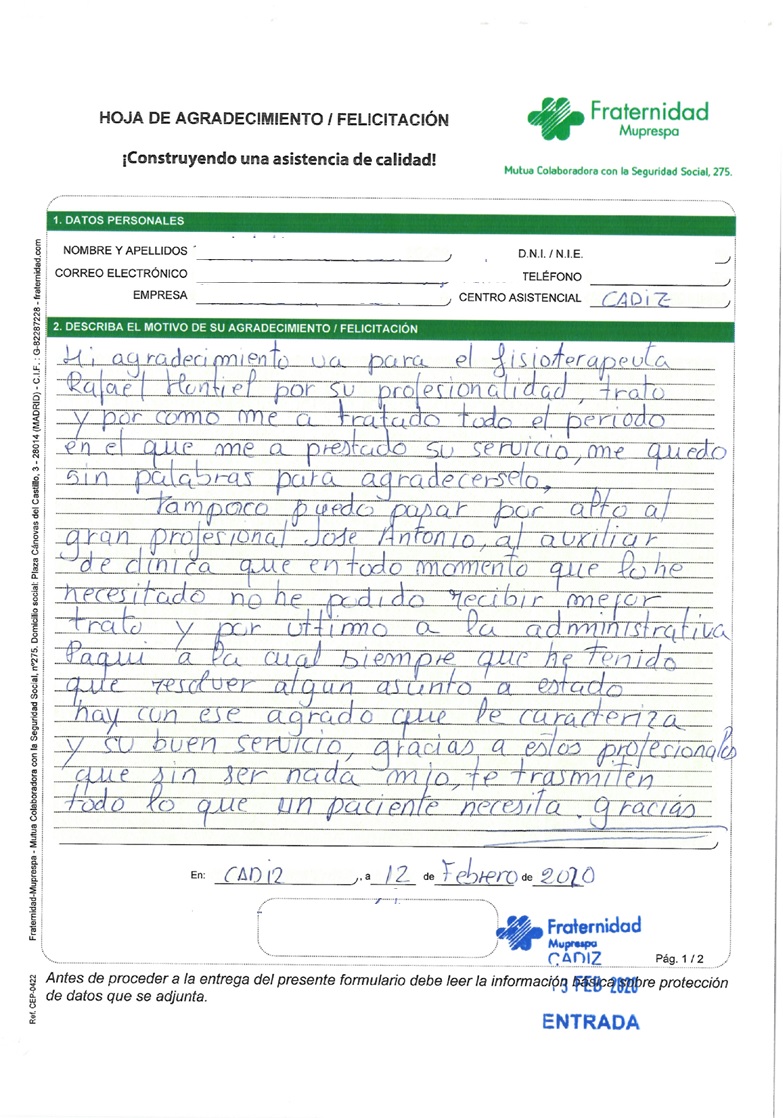 HOJA DE AGRADECIMIENTO / FELICITACIÓN
¡Construyendo una asistencia de calidad!
Fraternidad
Muprespa
Mutua Colaboradora con la Seguridad Social, 275.
1. DATOS PERSONALES
NOMBRE Y APELLIDOS
D.N.I. / N.I.E.
CORREO ELECTRÓNICO
TELÉFONO
EMPRESA
CENTRO ASISTENCIAL CADIZ
2. DESCRIBA EL MOTIVO DE SU AGRADECIMIENTO / FELICITACIÓN
Mi agradecimiento va para el fisioterapeuta
Rafael Montiel por su profesionalidad, trato
y por como me a tratado todo el periodo
en el que me a prestado su servicio, me quedo
sin palabras para agradecerselo,
tampoco puedo pasar por alto al
gran profesional Jose Antonio, al auxiliar
de clínica que en todo momento que lo he
necesitado no he podido recibir mejor
trato y por ultimo a la administrativa
Paqui a la cual siempre que he tenido
que resolver algun asunto a estado
hay con ese agrado que le caracteriza
y su buen servicio, gracias a estos profesionales
que sin ser nada mio, te trasmiten
todo lo que un paciente necesita. gracias
En: CADIZ, a 12 de Febrero de 2020
Fraternidad
Muprespa
CADIZ
Pág. 1 / 2
Antes de proceder a la entrega del presente formulario debe leer la información básica sobre protección
de datos que se adjunta.
FEB 2020
ENTRADA
Fraternidad-Muprespa - Mutua Colaboradora con la Seguridad Social, nº275. Domicilio social: Plaza Cánovas del Castillo, 3 - 28014 (MADRID) - C.I.F.: G-82287228 - fraternidad.com
Ref. CEP-0422